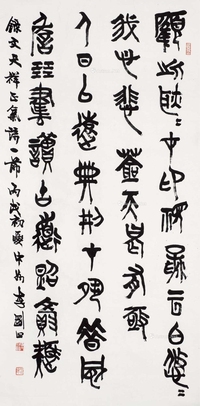 顧此耿耿在仰視浮云白悠悠
我心悲蒼天曷有極
人日已遠典刑在夙昔風
簷展書讀古道照顏色
錄文天祥正氣詩一節丙戌初夏中州李剛田